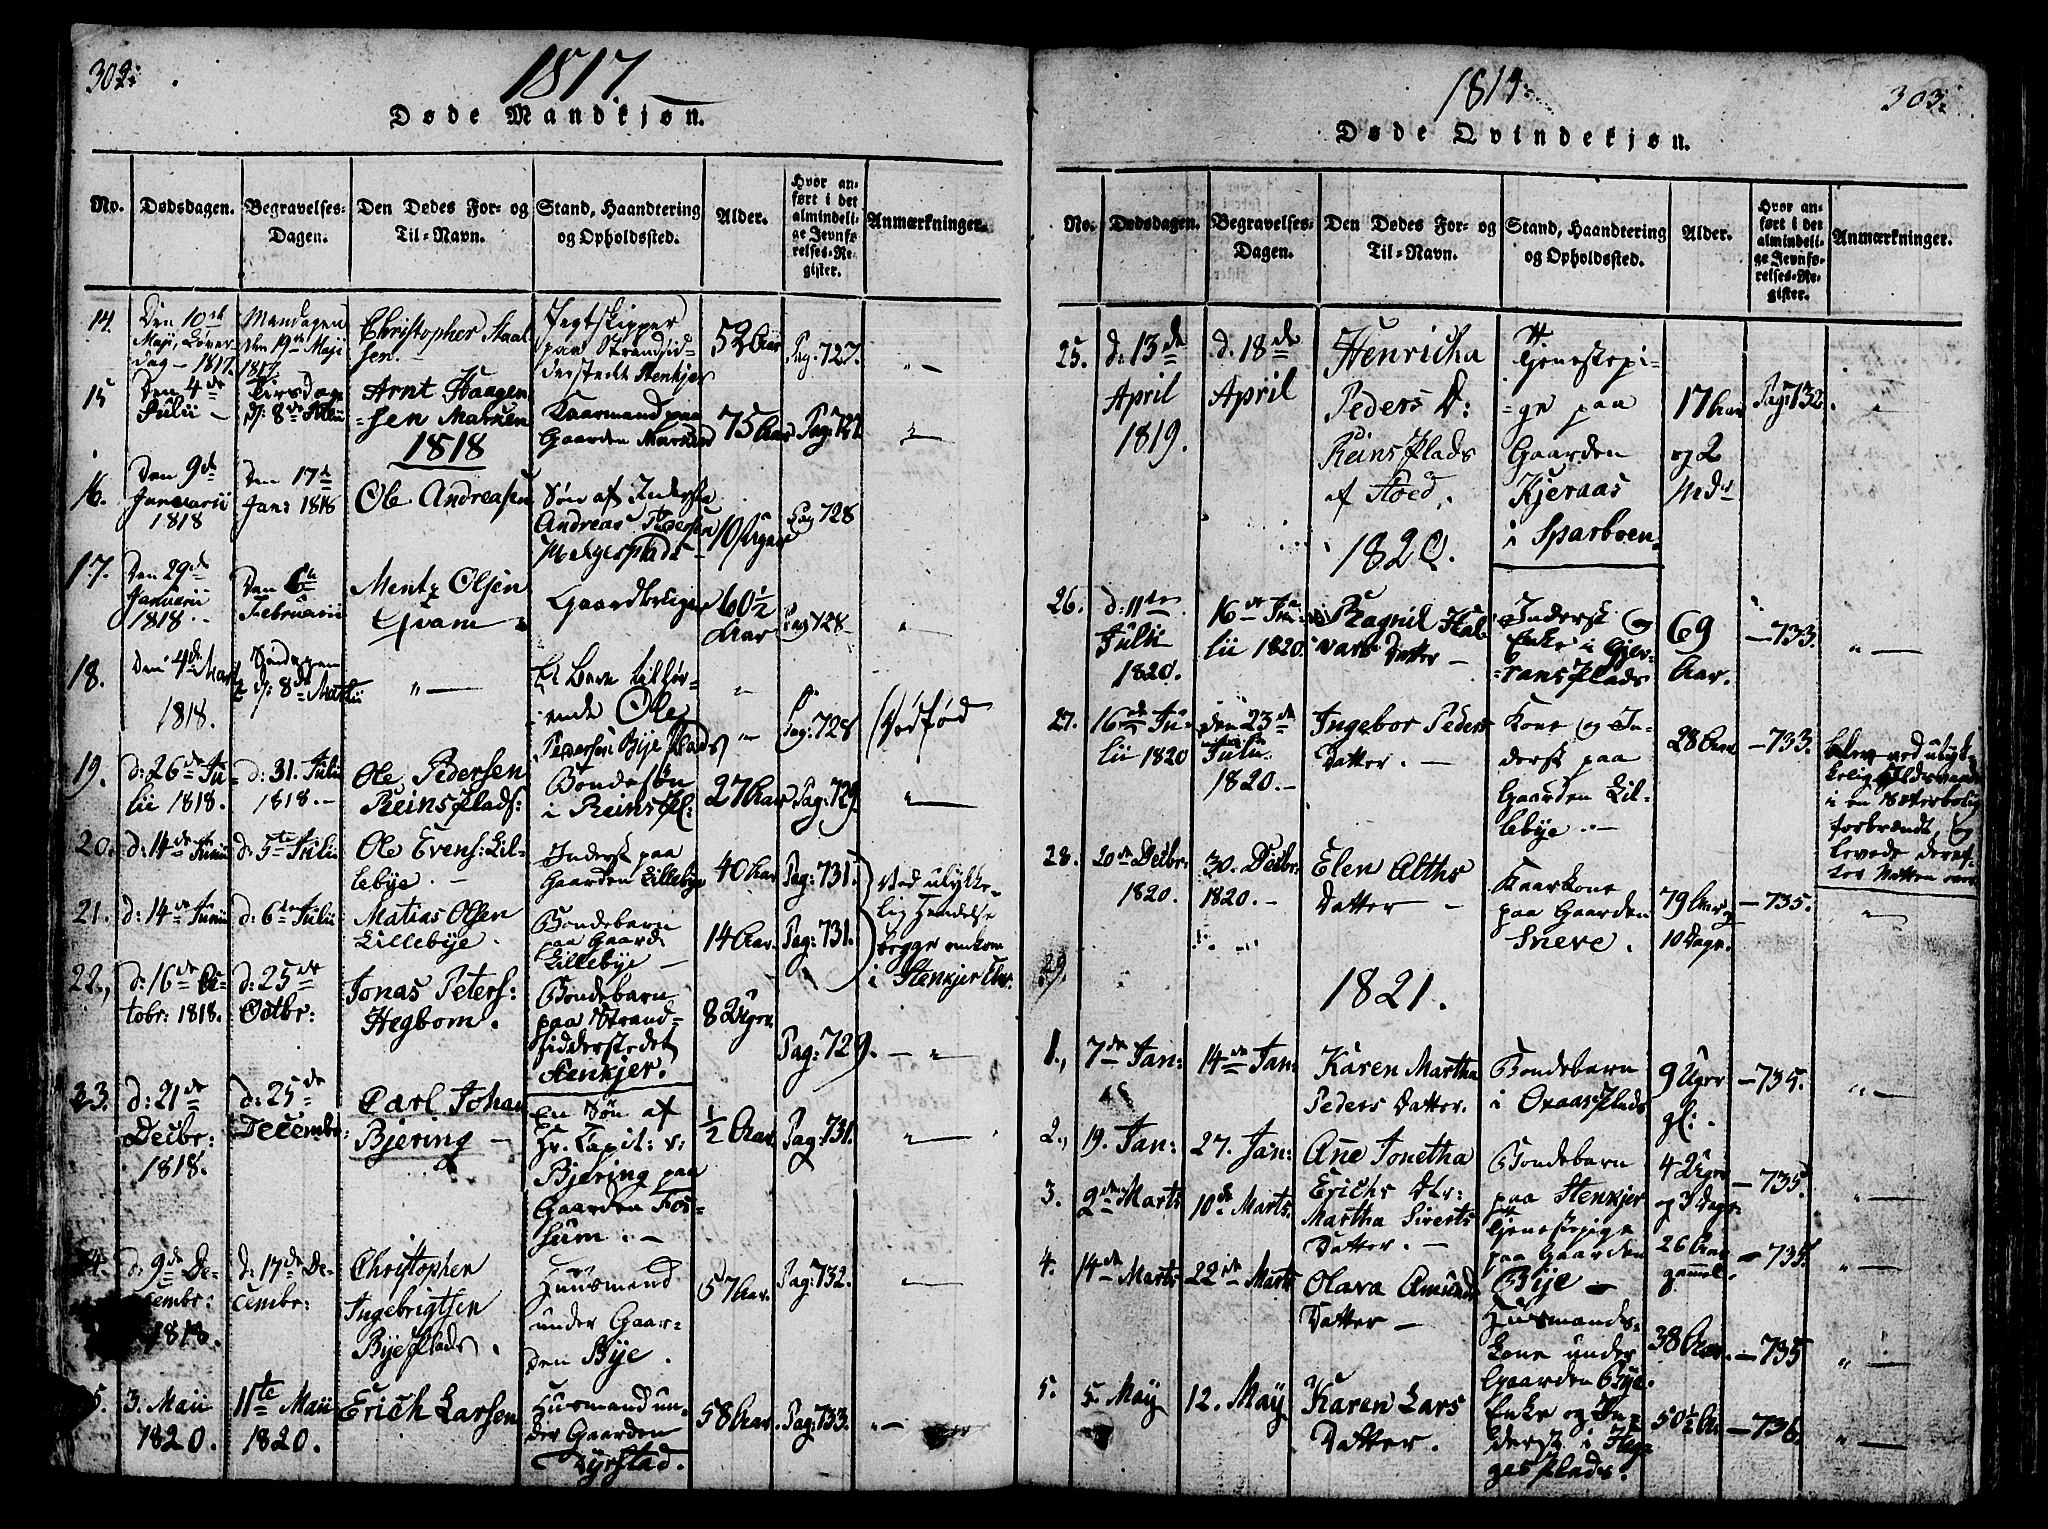 302.
1817
Døde Mandkjøn.
No.
Dødsdagen.
Begravelses-
Dagen.
Den Dødes For- og
Til-Navn.
Stand, Haandtering
og Opholdssted.
Alder.
Hvor an-
ført i det
almindeli-
ge Jevnfø-
relses-Re-
gister.
Anmærkninger.
14.
Den 10de
Maji, Løver-
dag - 1817.
Mandagen
den 19de Maji
1817.
Christopher Staal
sen.
Jagtskipper
paa Strandsid-
derstedet Stenkjer
53 Aar
Pag: 727.
15
Den 4de
Julii -
Tirsdag
d: 8de Julii
Arnt Haagen
-sen Marken
Kaarmand paa
Gaarden Marken
75 Aar
Pag: 727.
1818
16.
Den 9de
Januarii
1818
Den 17de
Jan: 1818
Ole Andreasen
Søn af Inderst
Andreas Pedersen
Helgesplads -
10 Uger
Pag 728
17.
Den 29de
Januarii
1818.
Den 6te
Februarii
Mentz Olsen
Qvam
Gaardbruger
60 1/2
Aar
Pag 728
18.
Den 4de Mar-
1818.
Søndagen
d: 8de Martii
" —
Et Barn tilhør-
ende Ole
Pedersen Bije Plads
"
Pag: 728
(Dødfød
19.
d: 26de Ju-
lii 1818.
d: 31. Julii
1818. -
Ole Pedersen
Reins Plads:
Bondesøn
i Reins Pl:
27 Aar
Pag: 729.
20.
d: 14de Junii
d: 5te Julii
Ole Evens: Lil-
lebye. -
Inderst paa
Gaarden Lillebye
40 Aar
Pag: 731.
Ved ulykke-
lig Hendelse
begge omkom
i Stenkjer Elv.
21.
d: 14de Junii
d: 6te Julii
Matias Olsen
Lillebye.
Bondebarn
paa Gaard
Lillebye -
14 Aar.
Pag: 731.
22.
d: 16de Oc-
tobr: 1818.
d: 25de
Octbr:
Jonas Peters:
Hegbom.
Bondebarn
paa Strand-
sidderstedet
Stenkjer.
8 Uger.
Pag: 729.
23.
d: 21de
Decbr:
1818.
d: 25de
Decembr:
Carl Johan
Bjering -
En Søn af
Hr. Capit: v:
Bjering paa
Gaarden Fos-
sum. -
1/2 Aar.
Pag: 731.
4.
d: 9de De-
cembr:
1818.
d: 17de De-
cembr:
Christophen
Ingebrigtsen
Bije Plads.
Huusmand
under Gaar-
den Bije.
57 Aar.
Pag: 732.
5.
3. Maii
1820.
11te Maii
1820.
Erich Larsen
Husmand un-
der Gaarden
Dyrstad.
58 Aar
Pag: 733.
1819.
303.
Døde Qvindekjøn.
No.
Dødsdagen.
Begravelses-
Dagen.
Den Dødes For- og
Til-Navn.
Stand, Haandtering
og Opholdssted.
Alder.
Hvor an-
ført i det
almindeli-
ge Jevnfø-
relses-Re-
gister.
Anmærkninger.
25.
d: 13de
April
1819.
d. 18de
April
Henricha
Peders D:
Reins Plads
af Stoed.
Tjenestepi-
-ge paa
Gaarden
Kjeraas
i Sparboen.
17 Aar
og 2
Mdr
Pag: 732.
1820.
26.
d: 11te
Julii
1820.
16de Ju-
lii 1820.
Ragnil Hal-
vars Datter -
Inderst og
Enke i Gjer-
-rans Plads
69
Aar.
- 733.
27.
16de Ju-
lii 1820
den 23de
Julii
1820. -
Ingebor Peders
Datter. -
Kone og In-
derst paa
Gaarden Lil-
lebye. -
28 Aar
- 733.
blev ved ulyk-
kelig Ildsvaade
forbrændt, og
levede deref-
ter Natten over
28.
20de Decbr.
1820.
30. Decbr.
1820. -
Elen Alths
Datter -
Kaarkone
paa Gaarden
Sneve.
79 Aar og
10 Dage.
- 735.
29.
1821.
1.
7de Jan:
14de Jan:
Karen Martha
Peders Datter.
Bondebarn
i Oxaas Plads
9 Uger
gl:.
- 735.
2.
19. Jan:
27. Jan:
Ane Jonetha
Erichs Dtr:
Bondebarn
paa Stenkjer
4 Uger
og 3 Dage.
- 735.
3.
2den Marts
10de Marts.
Martha Siverts
Datter. -
Tjenestepige
paa Gaarden
Bije -
26 Aar
gammel.
- 735.
4.
14de Marts
22de Marts
Olava Amunds
Datter -
Husmands-
kone under
Gaarden Bije.
38 Aar.
- 735
5.
5. May
12. May
Karen Lars
Datter.
Enke og In-
derst i Hel-
ges Plads.
50 1/2 Aar
- 736.